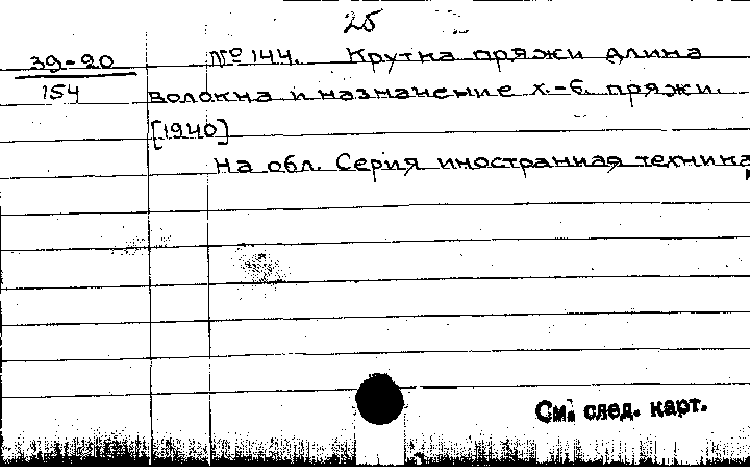 25
39-20
154
№ 144. Крутка пряжи длина
волокна и назначение х.-б. пряжи.
[1940]
На обл. Серия иностранная техника
См. след. карт.